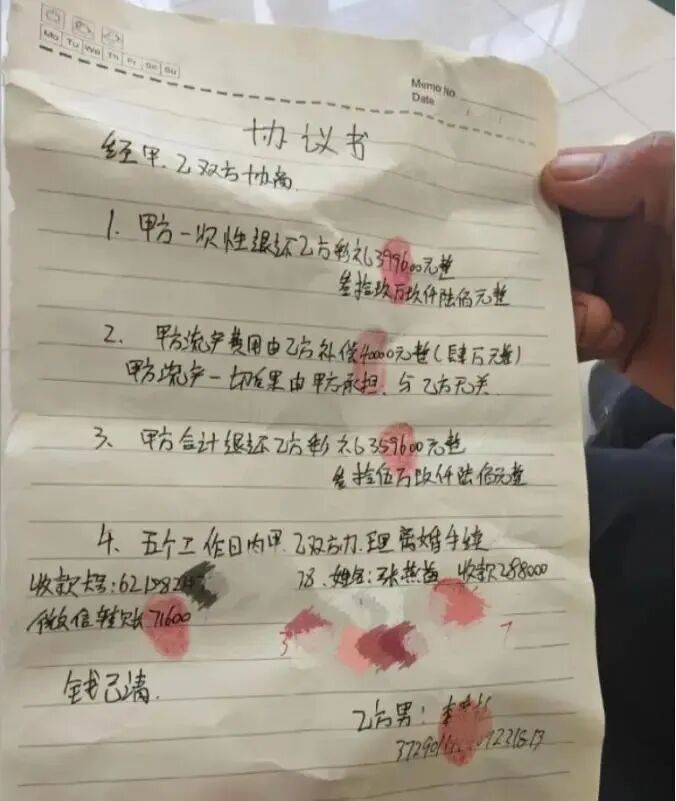 Mo Tu We Th Fr Sa Su
Memo No.
Date / /
协议书
经甲、乙双方协商
1、甲方一次性退还乙方彩礼399600元整
叁拾玖万玖仟陆佰元整
2、甲方流产费用由乙方补偿40000元整(肆万元整)
甲方流产一切后果由甲方承担、与乙方无关
3、甲方合计退还乙方彩礼359600元整
叁拾伍万玖仟陆佰元整
4、五个工作日内甲、乙双方办理离婚手续
收款卡号:621782 78、姓名:张燕 收款288000
微信转账71600
钱已清
乙方男:李